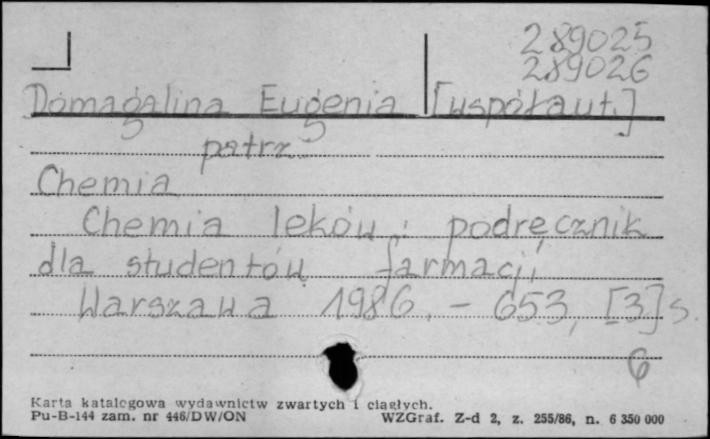 289025
289026
Domagalina Eugenia [współaut.]
patrz
Chemia
Chemia leków : podręcznik
dla studentów farmacji
Warszawa 1986. - 653, [3] s.
6
Karta katalogowa wydawnictw zwartych i ciągłych.
Pu-B-144 zam. nr 446/DW/ON WZGraf. Z-d 2, z. 255/86, n. 6 350 000